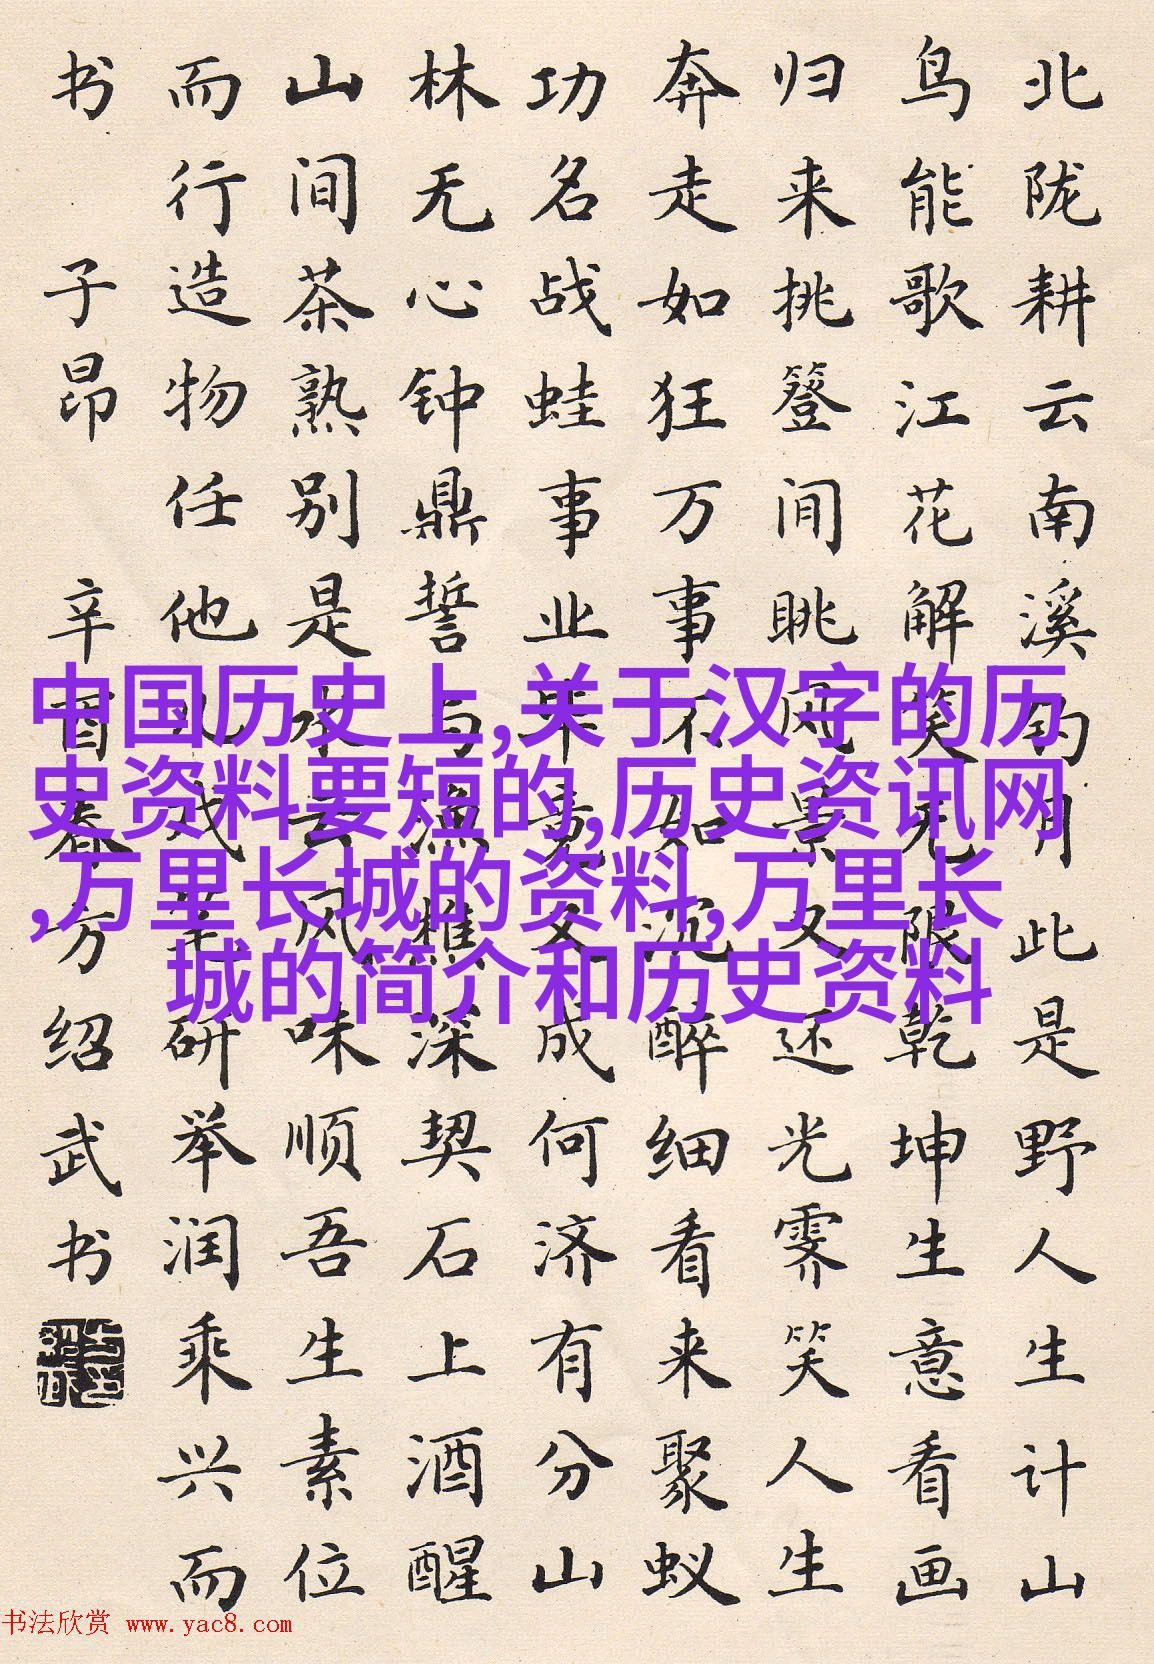 北陇耕云南溪钓月此是野人生计山
鸟能歌江花解笑无限乾坤生意看画
归来挑簦间眺风景又还光霁笑人生
奔走如狂万事不如沉醉细看来聚蚁
功名战蛙事业毕竟又成何济有分山
林无心钟鼎誓与渔樵深契石上酒醒
山间茶熟别是水云风味顺吾生素位
而行造物任他儿戏研举润乘兴而
书 子昂 辛酉春方绍武书
中国历史上,关于汉字的历
史资料要短的,历史资讯网
,万里长城的资料,万里长
城的简介和历史资料
书法欣赏 www.yac8.com